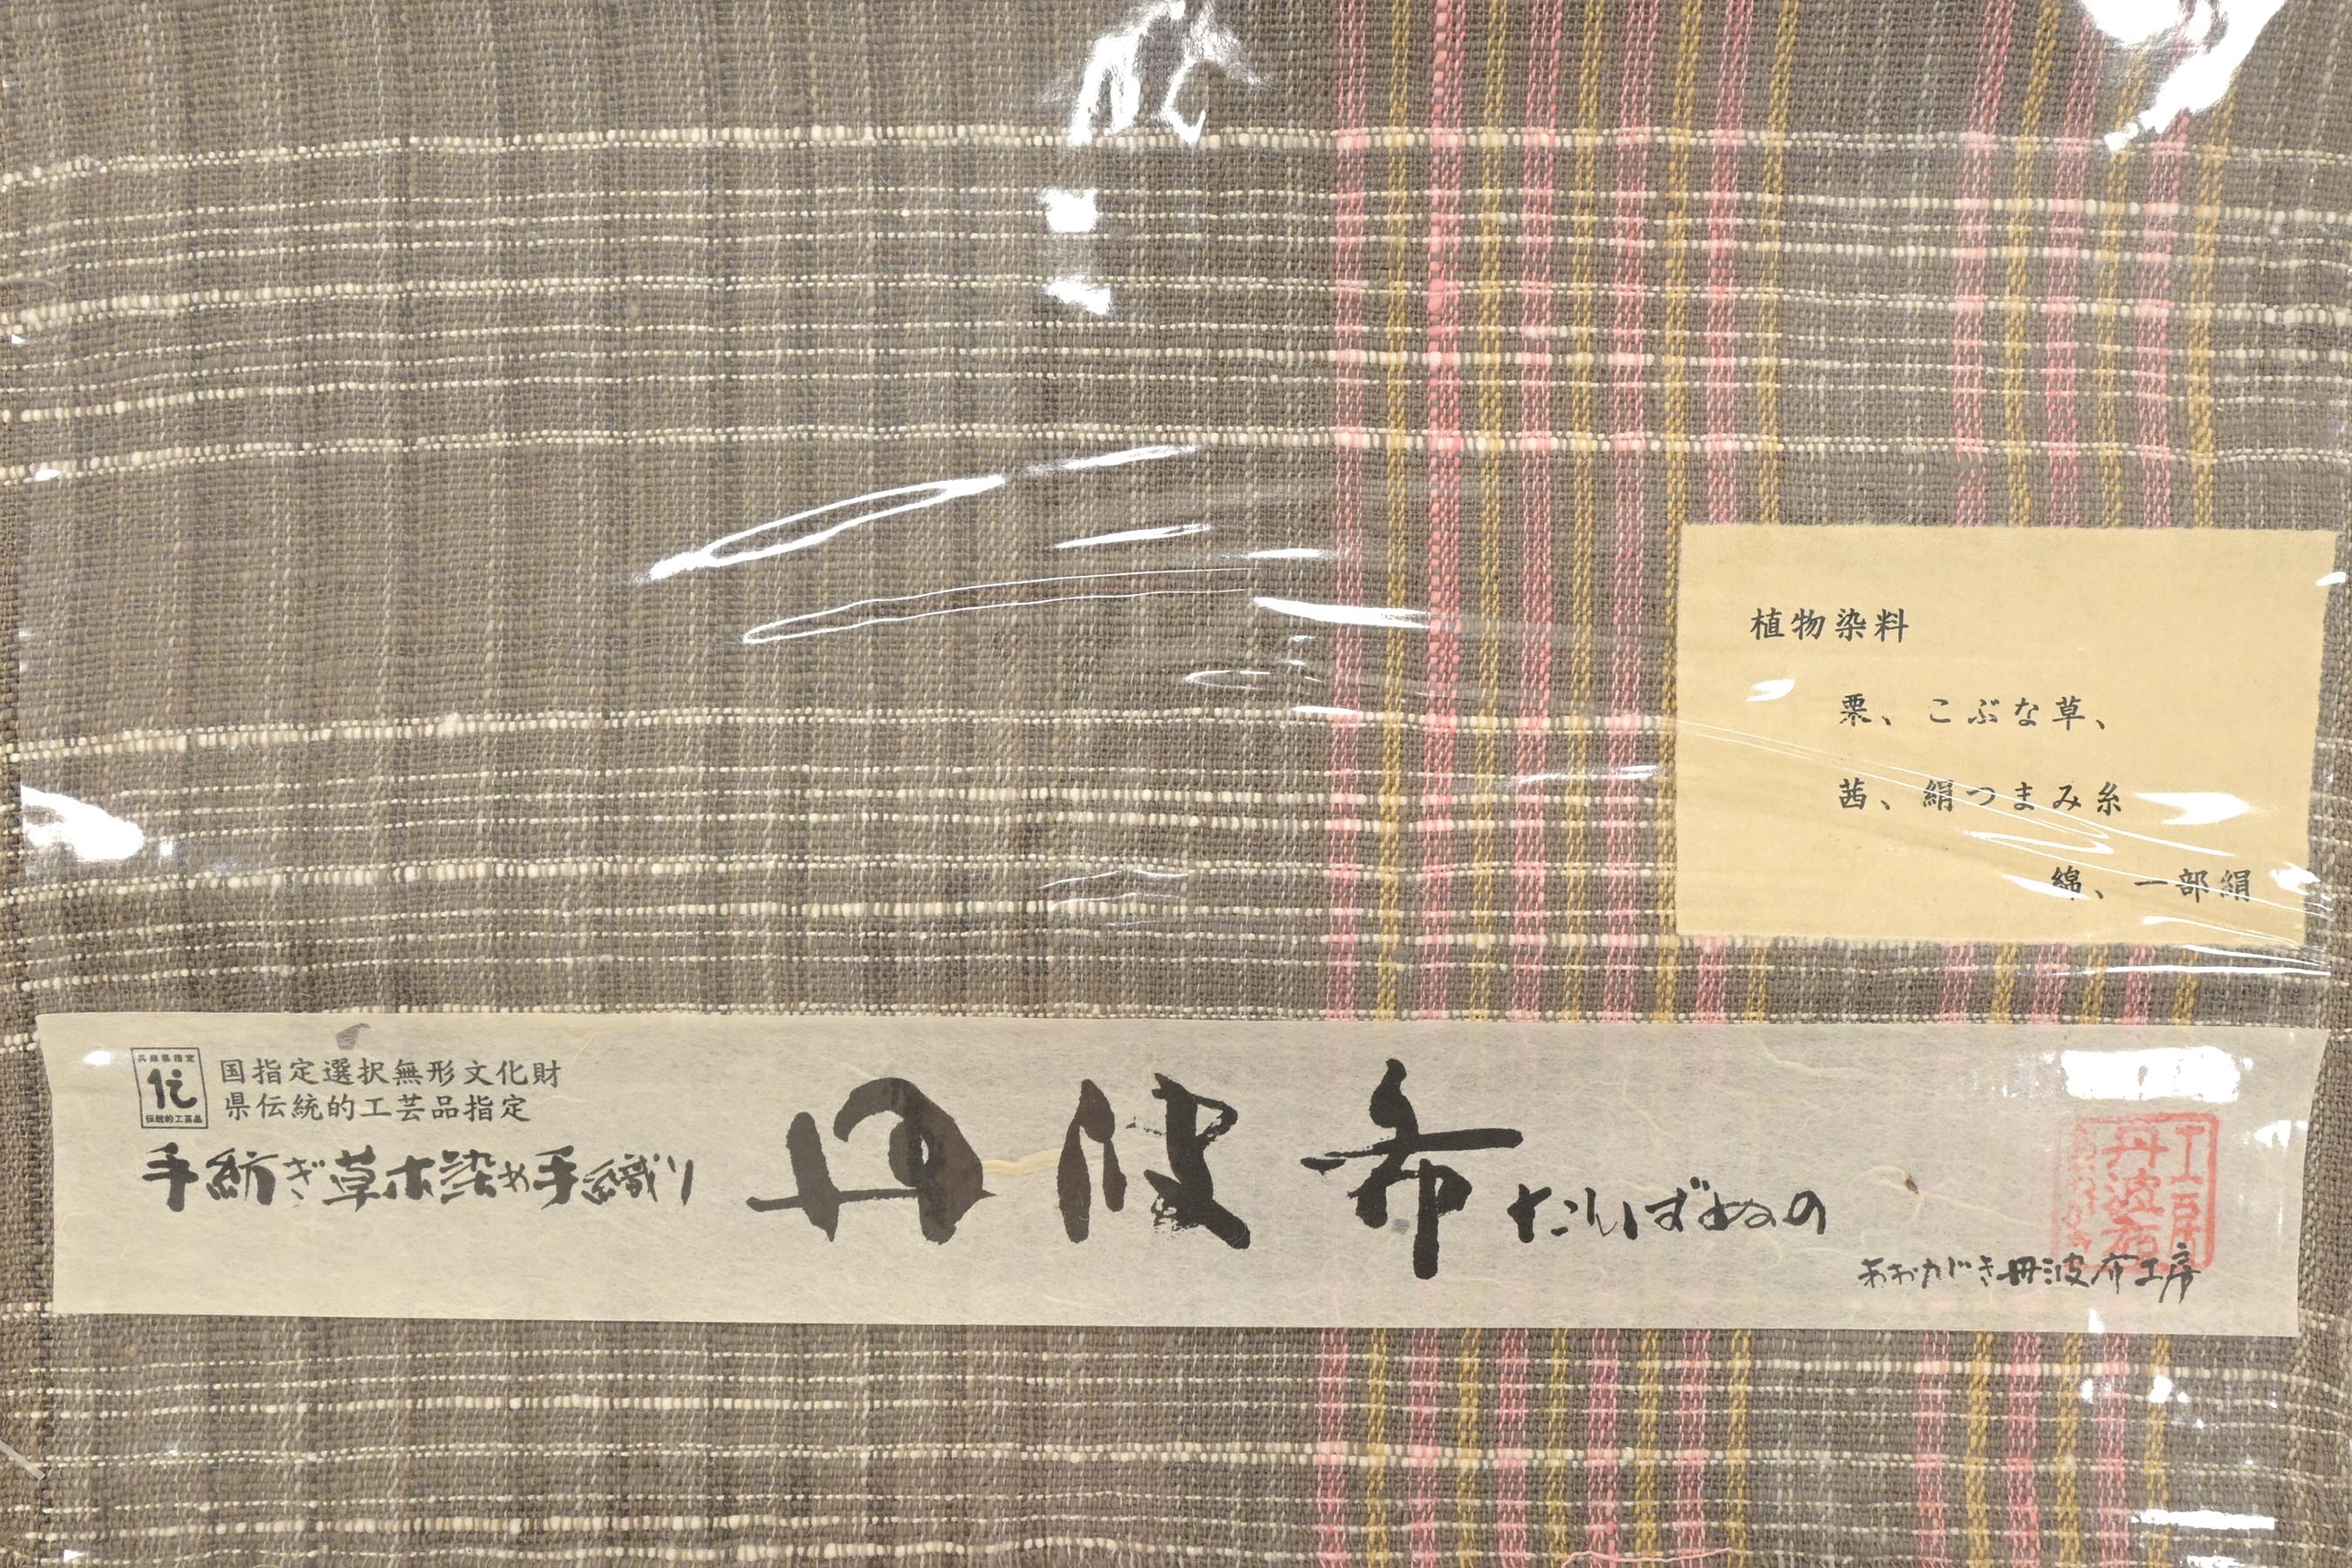 植物染料
栗、こぶな草、
茜、絹つまみ糸
綿、一部絹
兵庫県指定
伝
伝統的工芸品
国指定選択無形文化財
県伝統的工芸品指定
手紡ぎ草木染め手織り
丹波布
たんばぬの
工房
丹波布
あおがき丹波布工房